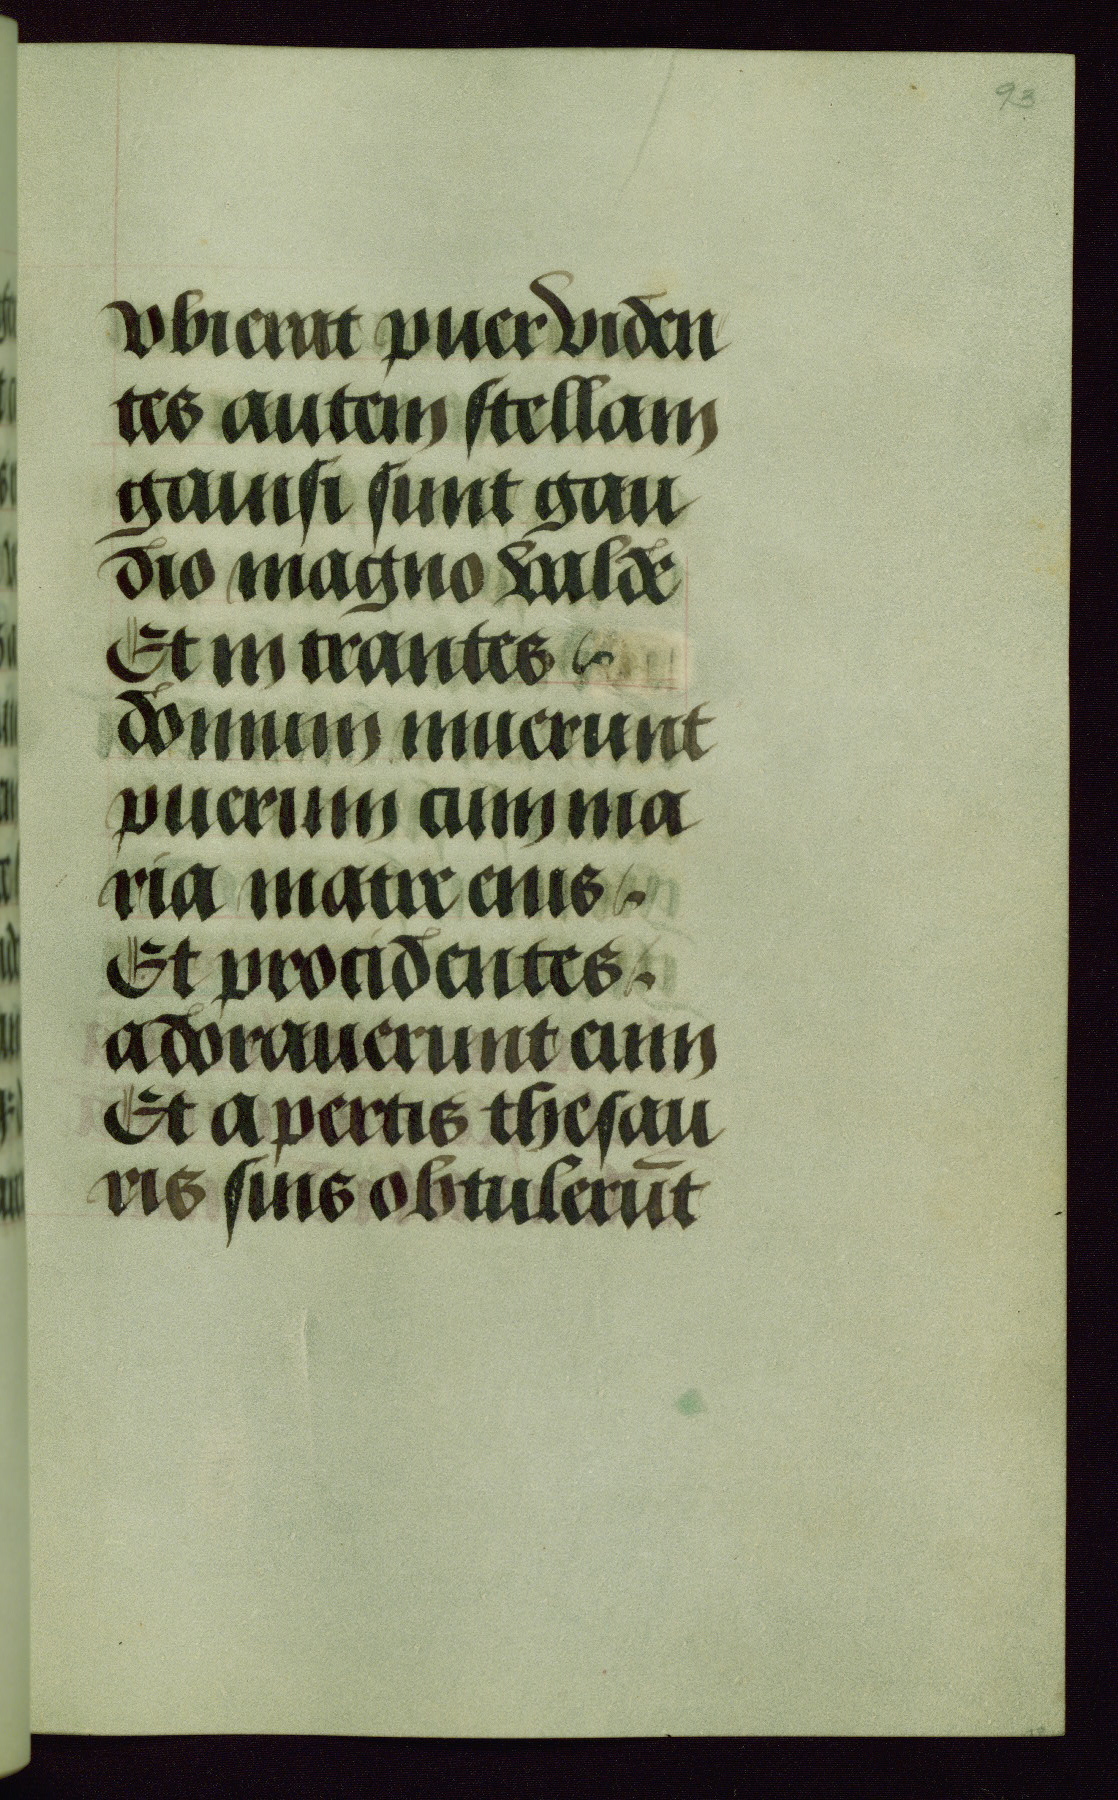 93
vbi erat puer Viden
tes autem stellam
gauisi sunt gau
dio magno valde
Et in trantes
domum inuerunt
puerum cum ma
ria matre eius
Et procidentes
adorauerunt eum
Et apertis thesau
ris suis obtulerūt